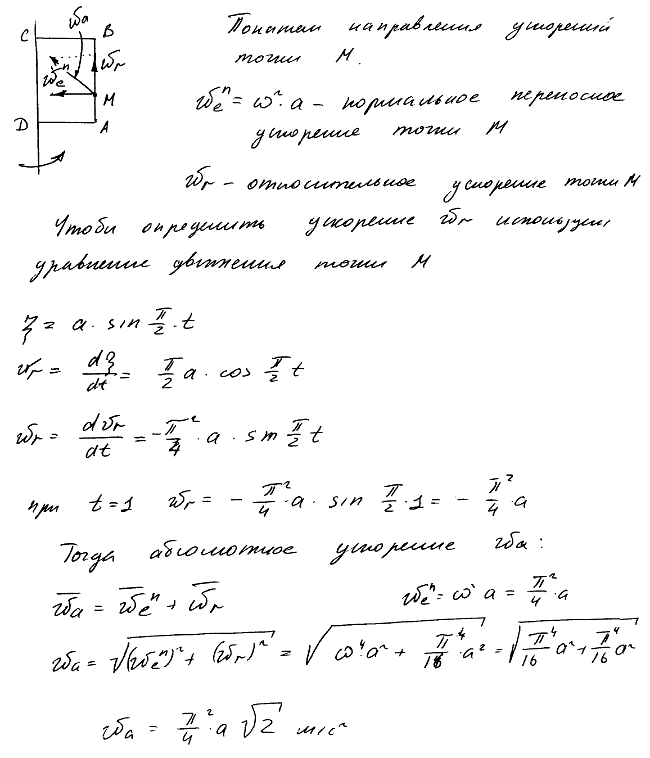 C B wa
Покажем направления ускорений
точки М.
wr
weⁿ
M
weⁿ = ω²·a – нормальное переносное
ускорение точки М
D A
wr – относительное ускорение точки М
Чтобы определить ускорение wr используем
уравнение движения точки М
ξ = a · sin π/2 · t
vr = dξ/dt = π/2 a · cos π/2 t
wr = dvr/dt = -π²/4 · a · sin π/2 t
при t=1 wr = - π²/4 · a · sin π/2 · 1 = - π²/4 · a
Тогда абсолютное ускорение wa:
w̄a = w̄eⁿ + w̄r weⁿ = ω² a = π²/4 · a
wa = √((weⁿ)² + (wr)²) = √(ω⁴·a² + π⁴/16 · a²) = √(π⁴/16 a² + π⁴/16 a²)
wa = π²/4 · a √2 м/с²